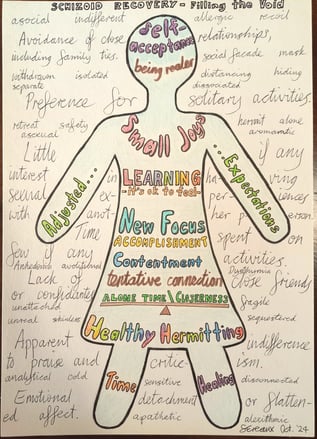 SCHIZOID RECOVERY - Filling the Void
asocial indifferent allergic recoil
Self-acceptance
Avoidance of close relationships,
including family ties. social facade mask
being realer
withdrawn isolated distancing hiding
separate dissociated
Preference for solitary activities.
retreat safety hermit alone
asexual aromantic
Small Joys
Little if any
Adjusted... ...Expectations
interest in having
LEARNING
-it's ok to feel-
sexual ex- per- iences
with anot- her person
New Focus
Time spent on
ACCOMPLISHMENT
few if any activities.
Contentment
Anhedonia avolitional Dysthymia
Lack of close friends
tentative connection
or confidants fragile
ALONE TIME \ CLOSENESS
unattached sequestered
unreal skinless
Healthy Hermitting
Apparent indifference
to praise and critic- ism.
analytical odd sensitive disconnected
Time Healing
Emotional detachment or flatten-
ed affect. apathetic alexithymic
Sereaux Oct. '24